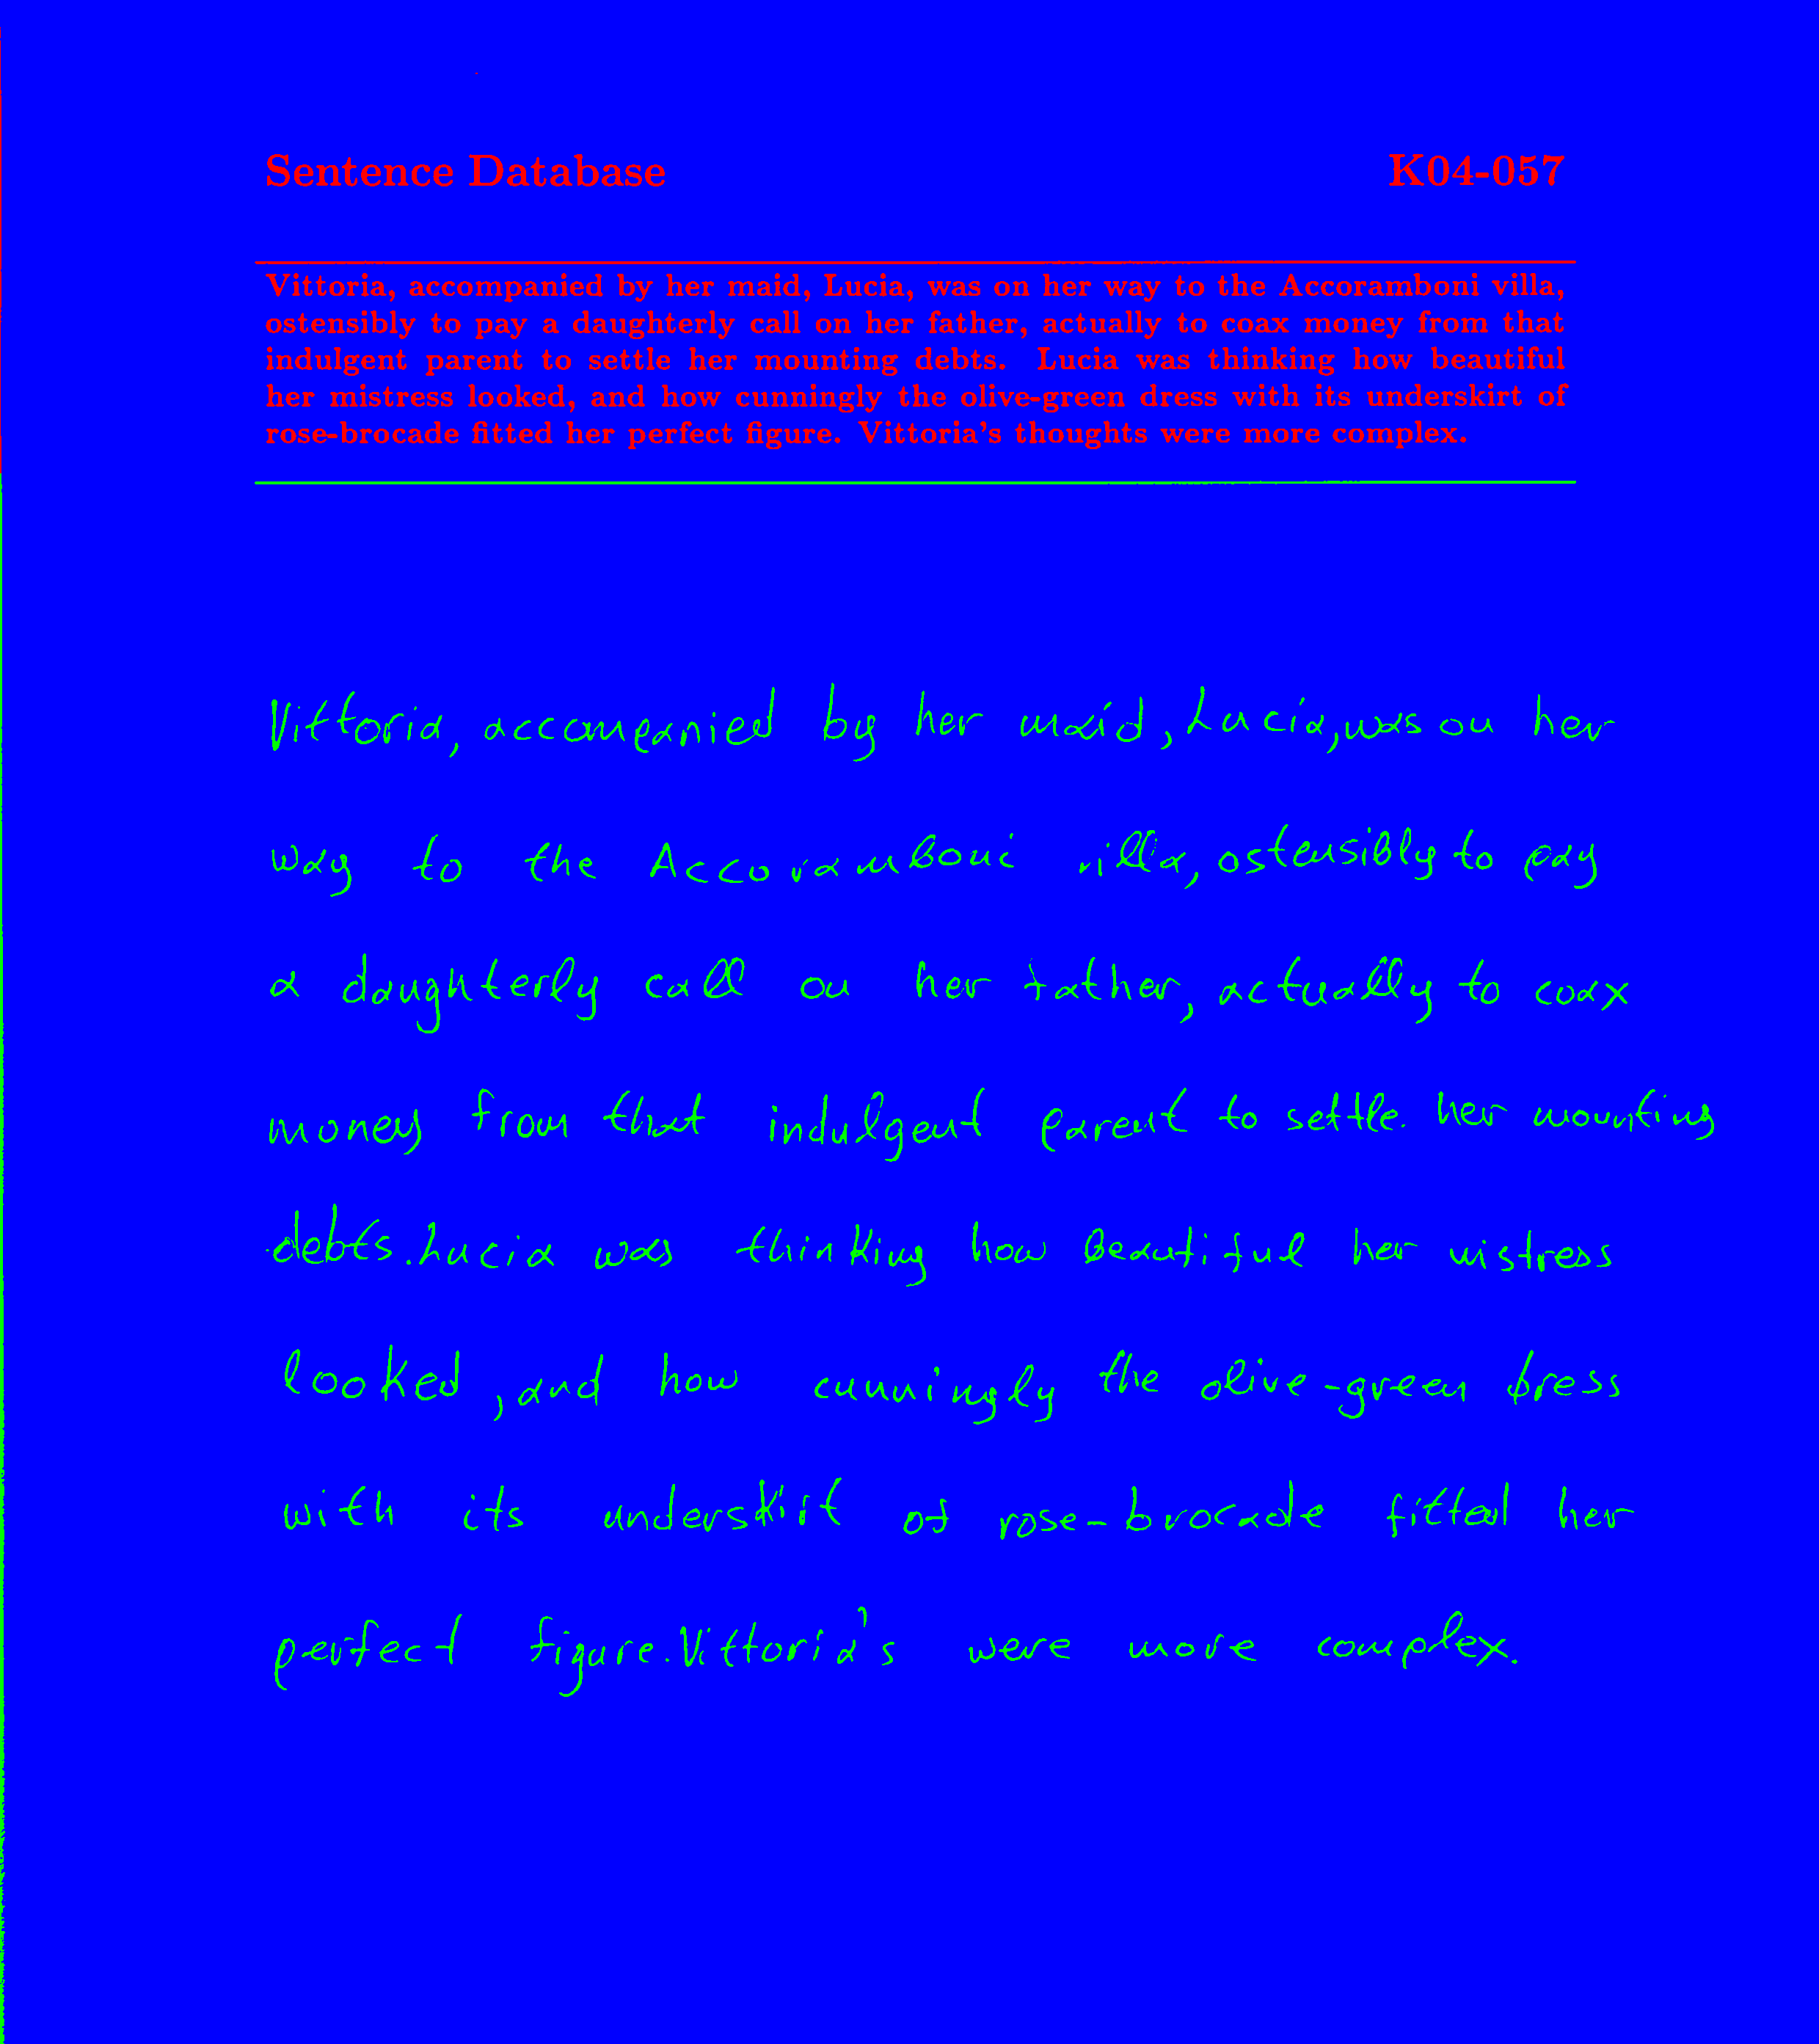 Sentence Database K04-057
Vittoria, accompanied by her maid, Lucia, was on her way to the Accoramboni villa,
ostensibly to pay a daughterly call on her father, actually to coax money from that
indulgent parent to settle her mounting debts. Lucia was thinking how beautiful
her mistress looked, and how cunningly the olive-green dress with its underskirt of
rose-brocade fitted her perfect figure. Vittoria's thoughts were more complex.
Vittoria, accompanied by her maid, Lucia, was on her
way to the Accoramboni villa, ostensibly to pay
a daughterly call on her father, actually to coax
money from that indulgent parent to settle. her mounting
debts. Lucia was thinking how beautiful her mistress
looked, and how cunningly the olive-green dress
with its underskirt of rose-brocade fitted her
perfect figure. Vittoria's were more complex.